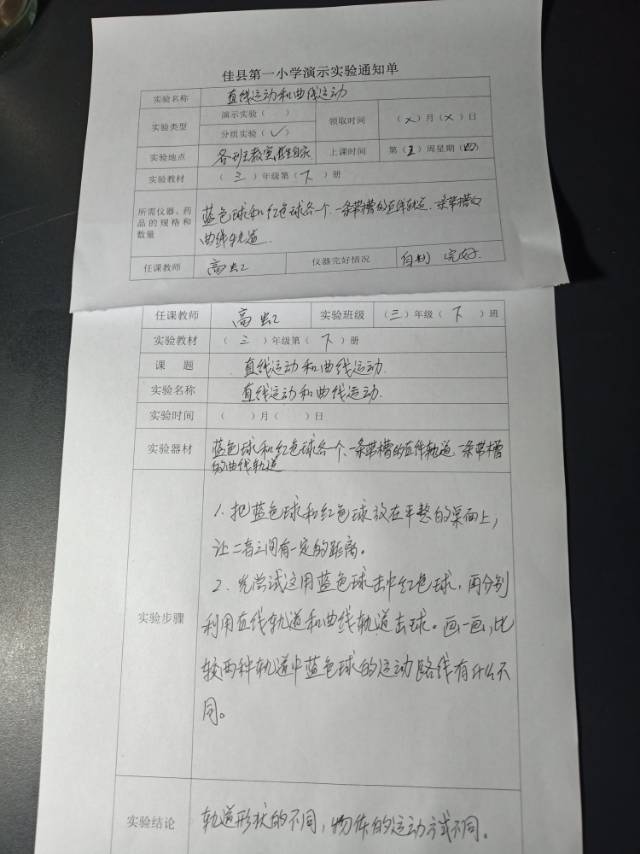 佳县第一小学演示实验通知单
实验名称 直线运动和曲线运动
实验类型 演示实验（ ） 领取时间 （×）月（×）日
分组实验（✓）
实验地点 各班教室 上课时间 第（五）周星期（四）
实验教材 （三）年级第（下）册
所需仪器、药品的规格和数量 蓝色球和红色球各一个、一条带槽的直线轨道、一条带槽的
曲线轨道
任课教师 高虹 仪器完好情况 完好
任课教师 高虹 实验班级 （三）年级（下）班
实验教材 （三）年级第（下）册
课题 直线运动和曲线运动
实验名称 直线运动和曲线运动
实验时间 （ ）月（ ）日
实验器材 蓝色球和红色球各一个、一条带槽的直线轨道 一条带槽
的曲线轨道
实验步骤 1. 把蓝色球和红色球放在平整的桌面上，
让二者之间有一定的距离。
2. 先尝试运用蓝色球击中红色球，再分别
利用直线轨道和曲线轨道击球。画一画，比
较两种轨道中蓝色球的运动路线有什么不
同。
实验结论 轨道形状的不同，物体的运动方式不同。